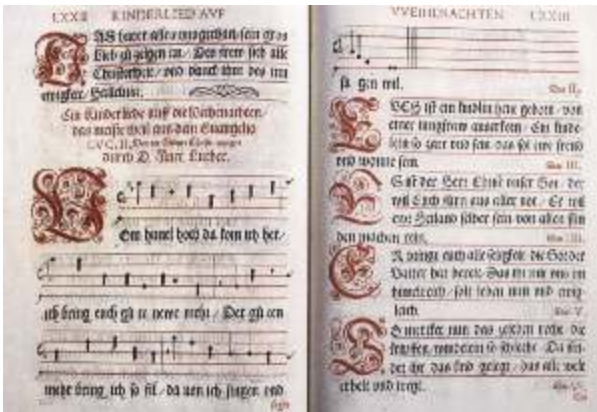 LXXII KINDERLIED AVF
Lieb zu zeigen an / Des frew sich alle
Christenheit / und danck ihm des inn
ewigkeit / Kyrieleis.
Ein Kinderliede auff die Weihenachten /
das meiste theil aus dem Euangelio
LVC. II.
durch D. Mart. Luther.
Vom himel hoch da kom ich her /
ich bring euch gu te newe mehr / Der gu ten
mehr bring ich so fil / da uon ich singen und
VVEIHENACHTEN LXXIII
sa gen wil.
II.
EVCH ist ein kindlin heut geborn / von
einer jungfraw auserkorn / Ein kinde-
lein so zart und fein das sol ewr freud
und wonne sein.
III.
ES ist der Herr Christ unser Got / der
wil Euch fürn aus aller not / Er wil
ewr Heiland selber sein von allen sün
den machen rein.
ER bringt euch alle seligkeit die Got der
Vatter hat bereit / Das ihr mit uns im
himelreich / solt leben nun und ewig-
lich.
V.
SO mercket nun das zeichen recht die
so schlecht / Da fin-
det ihr das kind gelegt / das alle welt
erhelt und tregt.